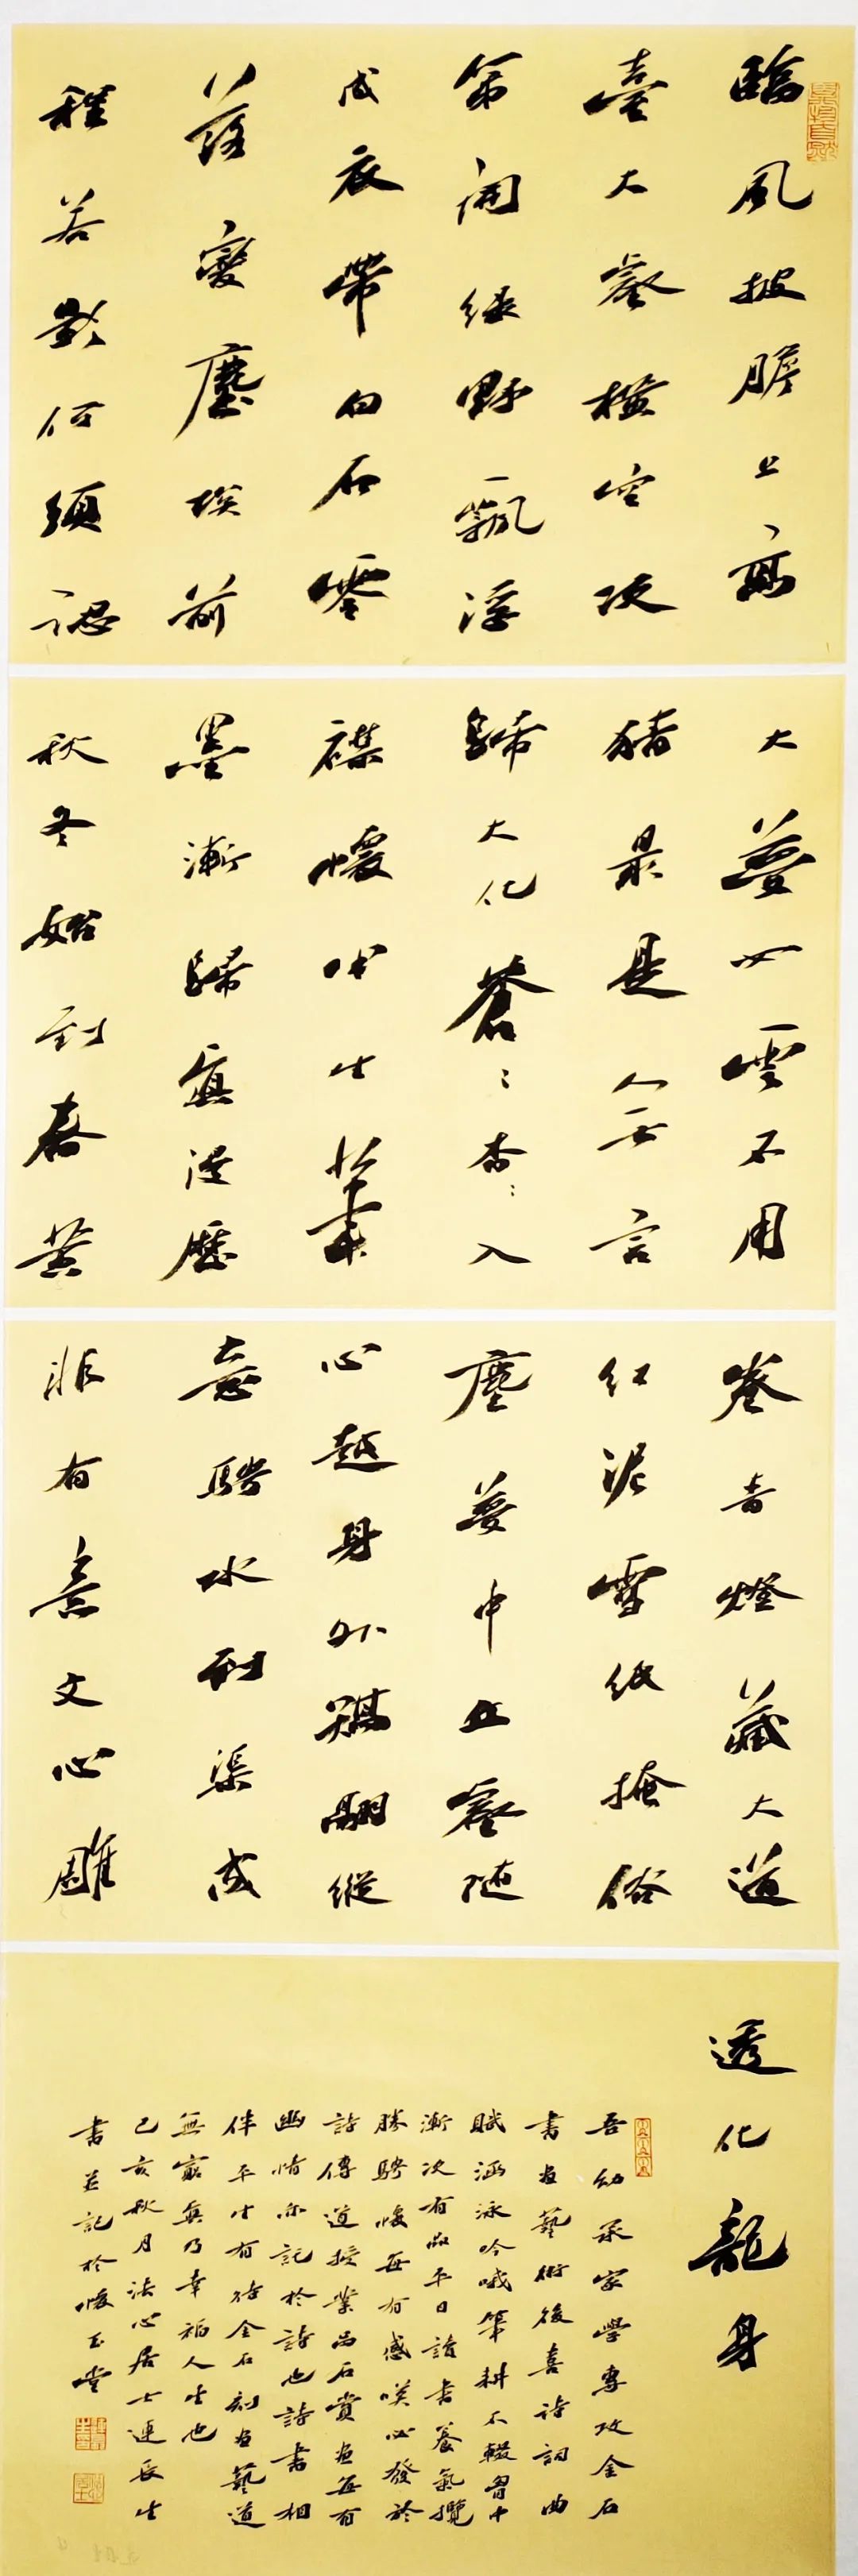 臨風披膽上高
臺大壑橫空次
第開綠野飄浮
成衣帶白石零
落變塵埃前
程若歎何須認
大夢如雲不用
猜最是人無言
歸大化蒼〻杳〻入
襟懷吟生筆
墨漸歸真浸歷
秋冬始到春黃
卷青燈藏大道
紅泥雪紙掩俗
塵夢中丘壑隨
心越身外翻縱
意騁水到渠成
非有意文心雕
透化龍身
吾幼承家學專攻金石
書畫藝術後喜詩詞曲
賦涵泳吟哦筆耕不輟胸中
漸次有品平日讀書養氣攬
勝騁懷每有感嘆必發於
詩傳道授業品石賞畫每有
幽情亦記於詩也詩書相
伴平生有詩金石刻畫藝道
無窮真乃幸福人生也
己亥秋月法心居士連長生
書並記於懷玉堂